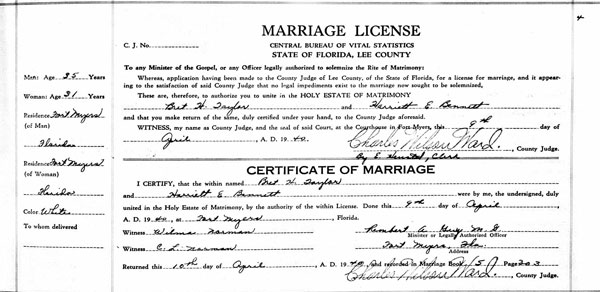 MARRIAGE LICENSE
C. J. No.
CENTRAL BUREAU OF VITAL STATISTICS
STATE OF FLORIDA, LEE COUNTY
To any Minister of the Gospel, or any Officer legally authorized to solemnize the Rite of Matrimony:
Whereas, application having been made to the County Judge of Lee County, of the State of Florida, for a license for marriage, and it appear-
ing to the satisfaction of said County Judge that no legal impediments exist to the marriage now sought to be solemnized,
These are, therefore, to authorize you to unite in the HOLY ESTATE OF MATRIMONY
Bret H. Taylor and Harriett E. Bennett
and that you make return of the same, duly certified under your hand, to the County Judge aforesaid.
WITNESS, my name as County Judge, and the seal of said Court, at the Courthouse in Fort Myers, this 9th day of
April, A. D. 1940. Charles Wilson Ward, County Judge.
By E. , Clerk
Man: Age 35 Years
Woman: Age 31 Years
Residence Fort Myers
(of Man)
Florida
Residence Fort Myers
(of Woman)
Florida
Color White
To whom delivered
CERTIFICATE OF MARRIAGE
I CERTIFY, that the within named Bret H. Taylor
and Harriett E. Bennett were by me, the undersigned, duly
united in the Holy Estate of Matrimony, by the authority of the within License. Done this 9th day of April
A. D. 1940, at Fort Myers, Florida.
Witness Wilma Norman
Witness C. L. Norman
M. G.
Minister or Legally Authorized Officer
Fort Myers, Fla.
Address
Returned this 10th day of April A. D. 1940 and recorded in Marriage Book 15 Page 203
Charles Wilson Ward, County Judge.